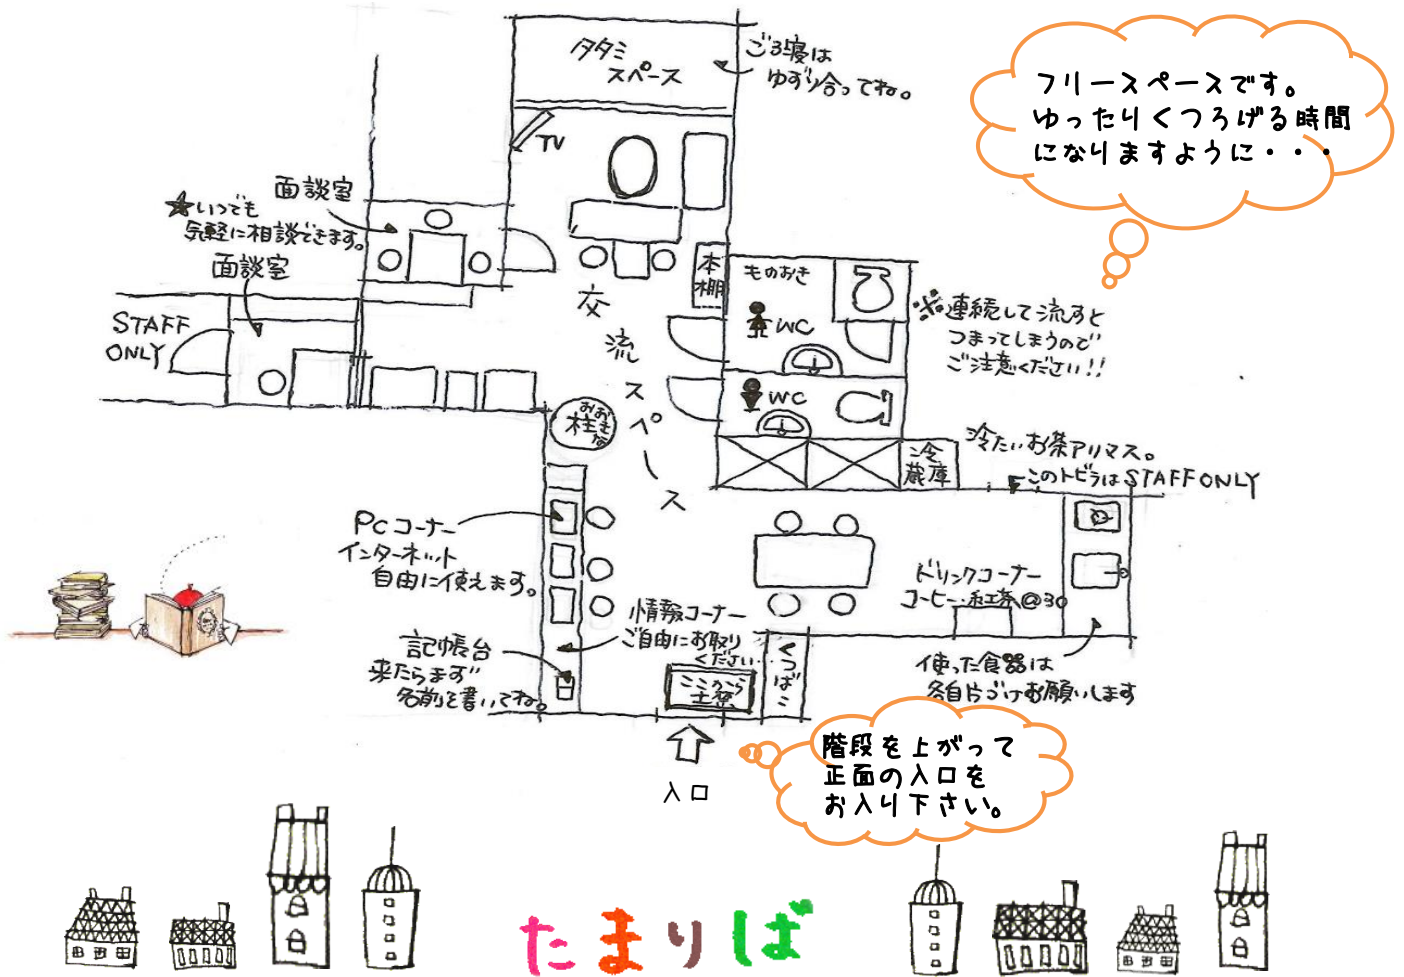 タタミ
スペース
ごろ寝は
ゆずり合ってね。
フリースペースです。
ゆったりくつろげる時間
になりますように・・・
TV
面談室
★いつでも
気軽に相談できます。
面談室
STAFF
ONLY
本棚
ものおき
WC
※連続して流すと
つまってしまうので
ご注意ください!!
交流スペース
WC
おおきな
柱
冷蔵庫
冷たいお茶アリマス。
このトビラはSTAFF ONLY
PCコーナー
インターネット
自由に使えます。
ドリンクコーナー
コーヒー・紅茶@30
情報コーナー
ご自由にお取り
ください
記帳台
来たらまず
名前を書いてね。
くつばこ
ここから
土禁
使った食器は
各自片づけお願いします
入口
階段を上がって
正面の入口を
お入り下さい。
たまりば